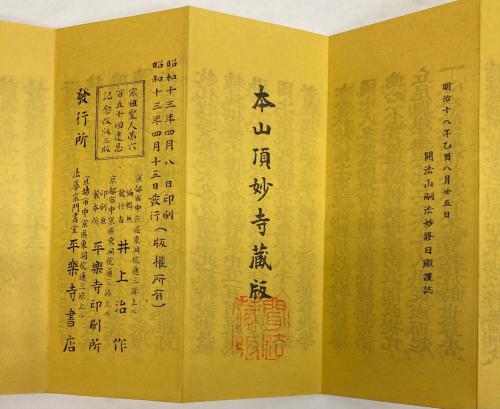 明治十八年乙酉八月廿五日
開法山嗣法妙發日顯謹誌
本山頂妙寺藏版
昭和十三年四月八日印刷
昭和十三年四月十五日發行（版權所有）
宗祖聖人第六
百五十回遠忌
記念改版三版
京都市中京區東洞院通三條上ル
編輯兼
發行者 井上治作
京都市中京區東洞院通三條上ル
印刷兼
製本所 平樂寺印刷所
發行所
京都市中京區東洞院通三條上ル
法華宗門書堂 平樂寺書店